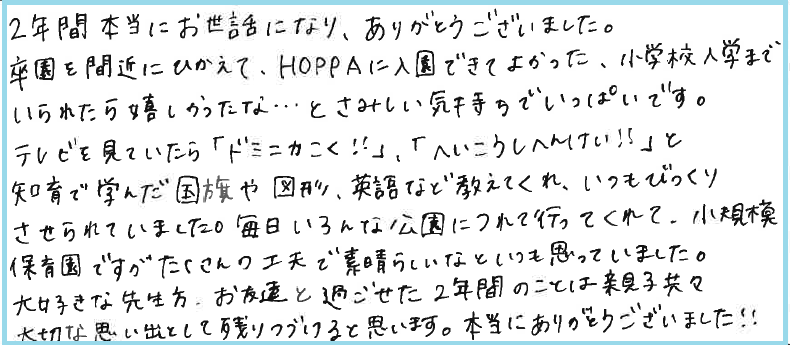 2年間本当にお世話になり、ありがとうございました。
卒園を間近にひかえて、HOPPAに入園できてよかった、小学校入学まで
いられたら嬉しかったな…とさみしい気持ちでいっぱいです。
テレビを見ていたら「ドミニカこく!!」、「へいこうしへんけい!!」と
知育で学んだ国旗や図形、英語など教えてくれ、いつもびっくり
させられていました。毎日いろんな公園につれて行ってくれて、小規模
保育園ですがたくさんの工夫で素晴らしいなといつも思っていました。
大好きな先生方、お友達と過ごせた2年間のことは親子共々
大切な思い出として残りつづけると思います。本当にありがとうございました!!